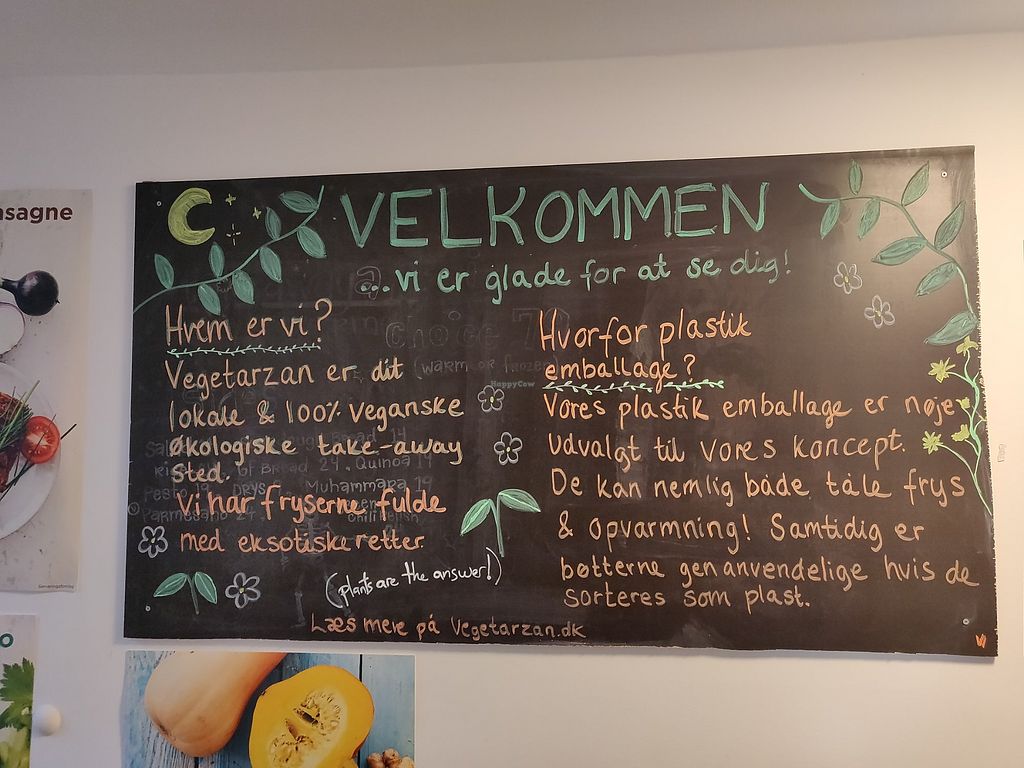 asagne
VELKOMMEN
...vi er glade for at se dig!
Hvem er vi?
Vegetarzan er dit
lokale & 100% veganske
økologiske take-away
sted.
Vi har fryserne fulde
med eksotiske retter.
(plants are the answer!)
Hvorfor plastik
emballage?
Vores plastik emballage er nøje
udvalgt til vores koncept.
De kan nemlig både tåle frys
& opvarmning! Samtidig er
bøtterne genanvendelige hvis de
sorteres som plast.
Læs mere på Vegetarzan.dk
Choice
(warm or frozen
GF Bread 24. Quinoa 14
Muhammara 19
HappyCow